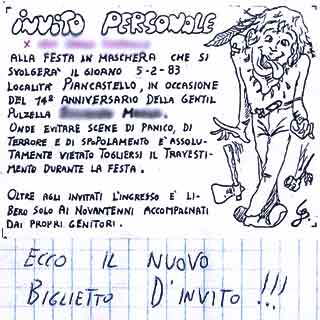 INVITO PERSONALE
ALLA FESTA IN MASCHERA CHE SI
SVOLGERA' IL GIORNO 5-2-83
LOCALITÀ PIANCASTELLO, IN OCCASIONE
DEL 14º ANNIVERSARIO DELLA GENTIL
PULZELLA
ONDE EVITARE SCENE DI PANICO, DI
TERRORE E DI SPOPOLAMENTO E' ASSOLU-
TAMENTE VIETATO TOGLIERSI IL TRAVESTI-
MENTO DURANTE LA FESTA.
OLTRE AGLI INVITATI L'INGRESSO E' LI-
BERO SOLO AI NOVANTENNI ACCOMPAGNATI
DAI PROPRI GENITORI.
ECCO IL NUOVO
BIGLIETTO D'INVITO !!!